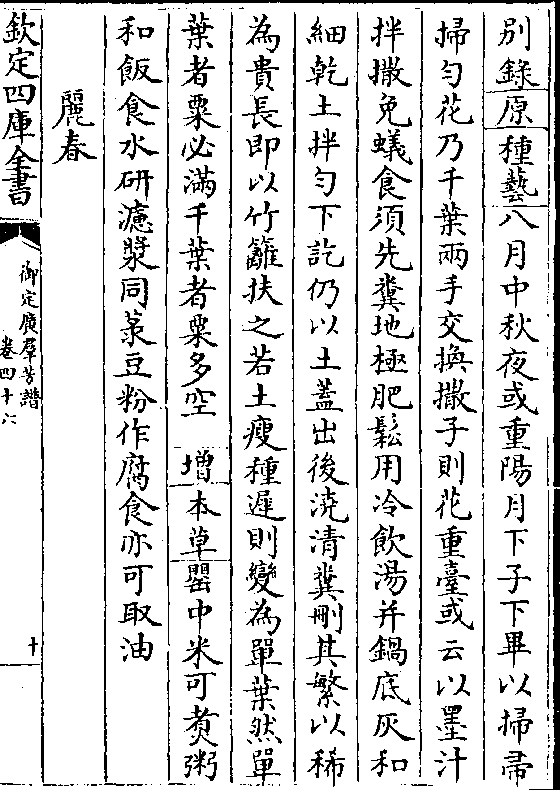 別錄原種藝八月中秋夜或重陽月下子下畢以掃帚
掃勻花乃千葉兩手交換撒子則花重臺或云以墨汁
拌撒免蟻食須先糞地極肥鬆用冷飲湯并鍋底灰和
細乾土拌勻下訖仍以土蓋出後澆清糞刪其繁以稀
為貴長即以竹籬扶之若土瘦種遲則變為單葉然單
葉者粟必滿千葉者粟多空 增本草罌中米可煑粥
和飯食水研濾漿同菉豆粉作腐食亦可取油
麗春
欽定四庫全書
御定廣羣芳譜
卷四十六
十